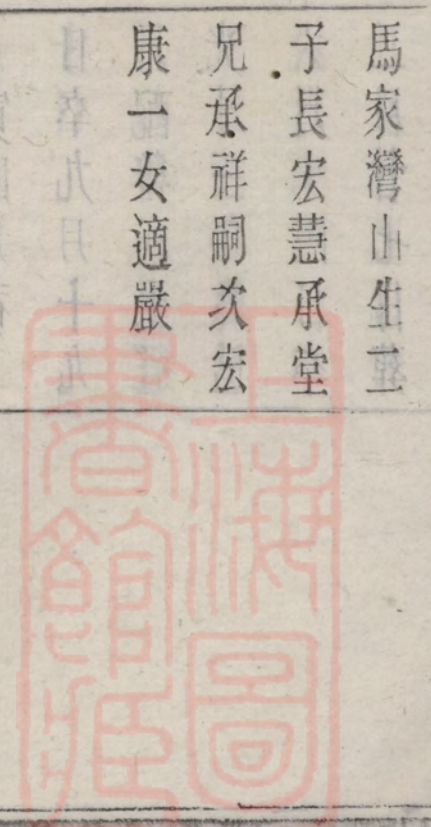 馬家灣山生二
子長宏慧承堂
兄承祥嗣次宏
康一女適嚴
上海圖
書館藏